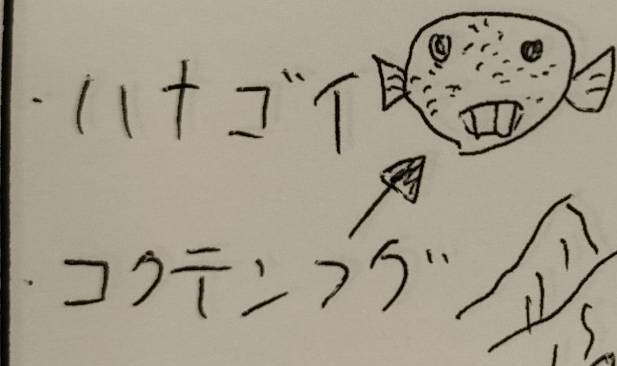 ・ハナゴイ
・コクテンフグ